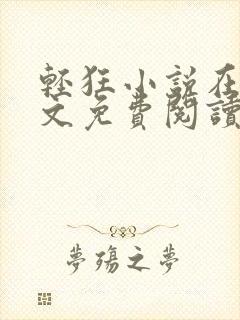 輕狂小説在
文免費閱讀
夢殤之夢